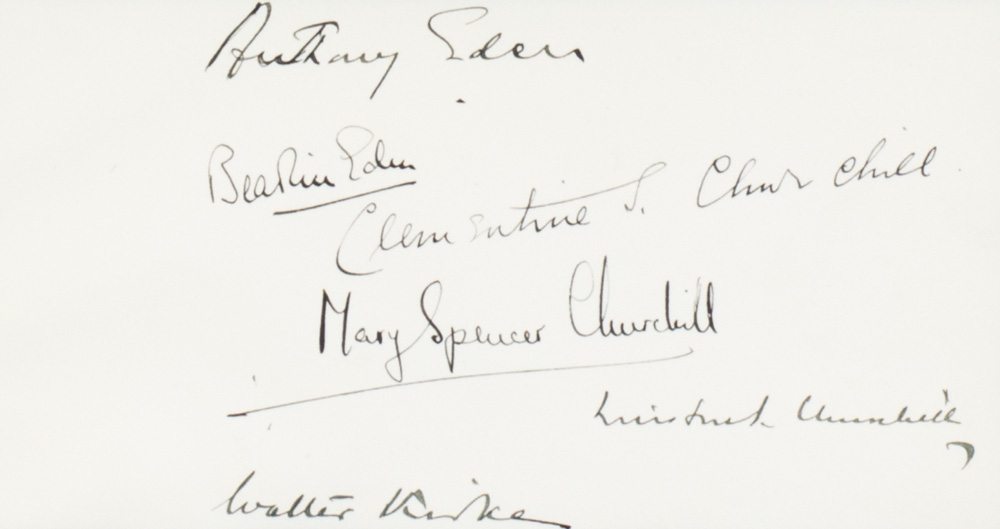 Anthony Eden
Beatrice Eden
Clementine S. Churchill
Mary Spencer Churchill
Winston S. Churchill
Walter Kirke